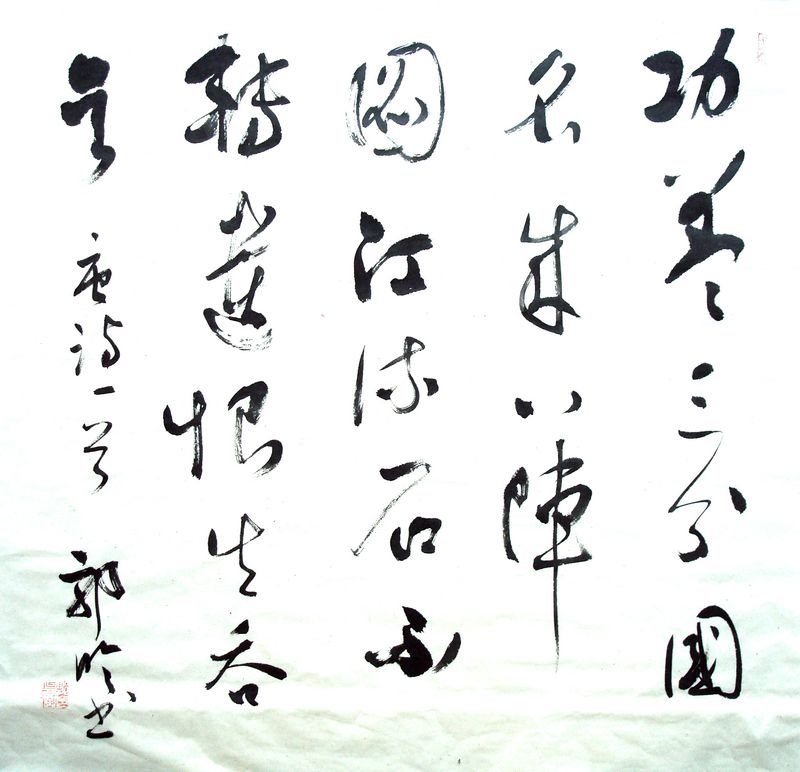 功盖三分國
名成八陣
圖江流石不
轉遺恨失吞
吴 唐诗一首 郭 书